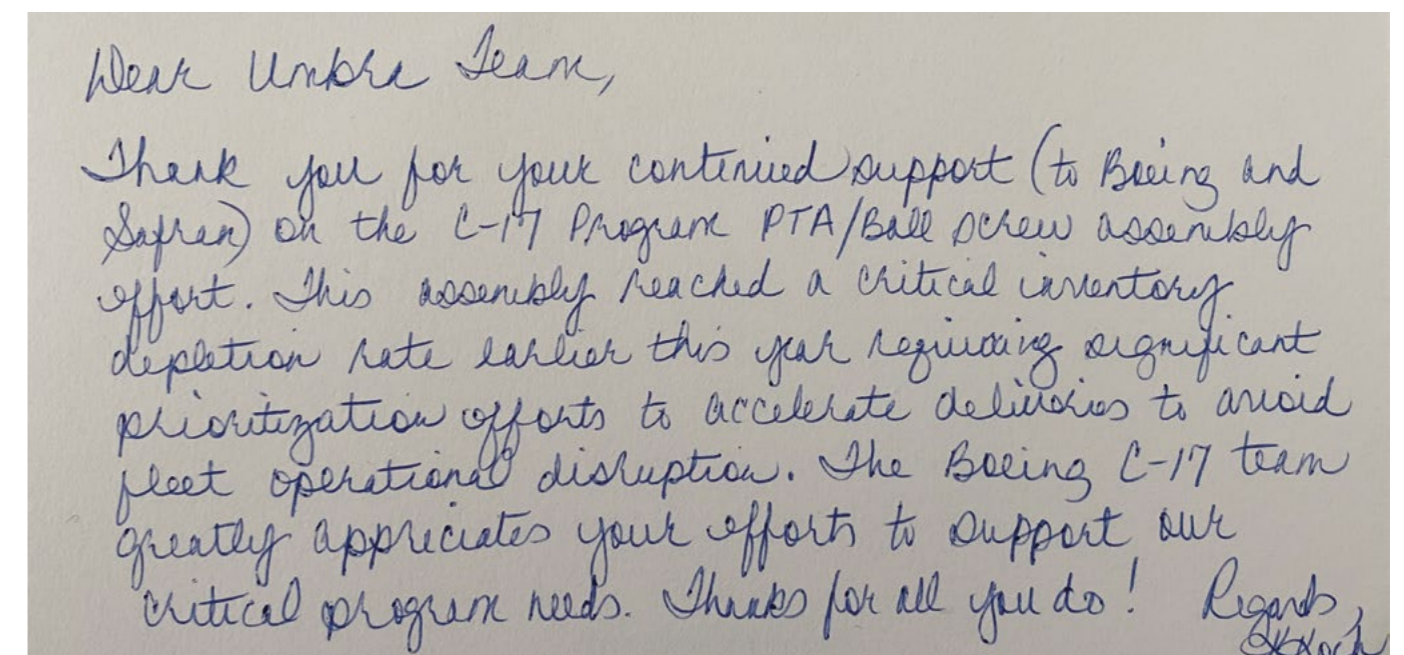 Dear Umbra Team,
Thank you for your continued support (to Boeing and
Safran) on the C-17 Program PTA/Ball screw assembly
effort. This assembly reached a critical inventory
depletion rate earlier this year requiring significant
prioritization efforts to accelerate deliveries to avoid
fleet operational disruption. The Boeing C-17 team
greatly appreciates your efforts to support our
critical program needs. Thanks for all you do! Regards,